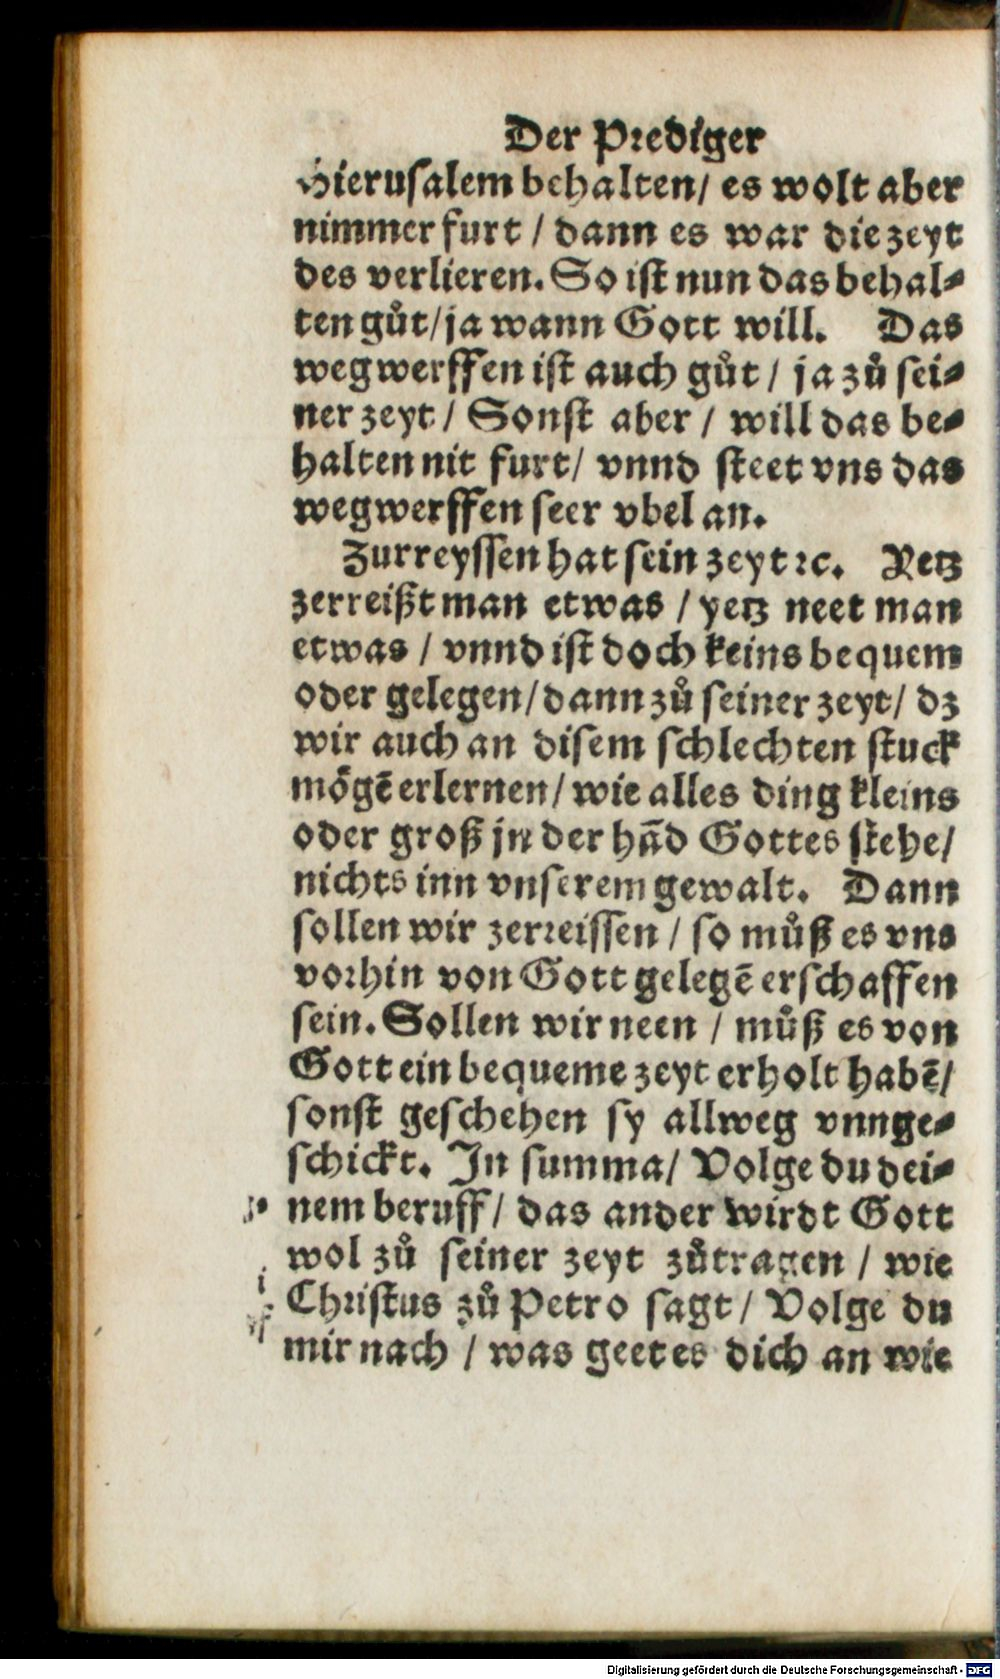 Der Prediger
Hierusalem behalten/ es wolt aber
nimmer furt / dann es war die zeyt
des verlieren. So ist nun das behal⸗
ten gůt/ ja wann Gott will. Das
wegwerffen ist auch gůt / ja zů sei⸗
ner zeyt / Sonst aber / will das be⸗
halten nit furt/ vnnd steet vns das
wegwerffen seer vbel an.
Zurreyssen hat sein zeyt ꝛc. Yetz
zerreißt man etwas / yetz neet man
etwas / vnnd ist doch keins bequem
oder gelegen/ dann zů seiner zeyt/ dz
wir auch an disem schlechten stuck
mögē erlernen/ wie alles ding kleins
oder groß jn der hād Gottes stehe/
nichts inn vnserem gewalt. Dann
sollen wir zerreissen / so můß es vns
vorhin von Gott gelegē erschaffen
sein. Sollen wir neen / můß es von
Gott ein bequeme zeyt erholt habē/
sonst geschehen sy allweg vnnge⸗
schickt. In summa/ Volge du dei⸗
nem beruff/ das ander wirdt Gott
wol zů seiner zeyt zůtragen / wie
Christus zů Petro sagt/ Volge du
mir nach / was geet es dich an wie
Digitalisierung gefördert durch die Deutsche Forschungsgemeinschaft - DFG